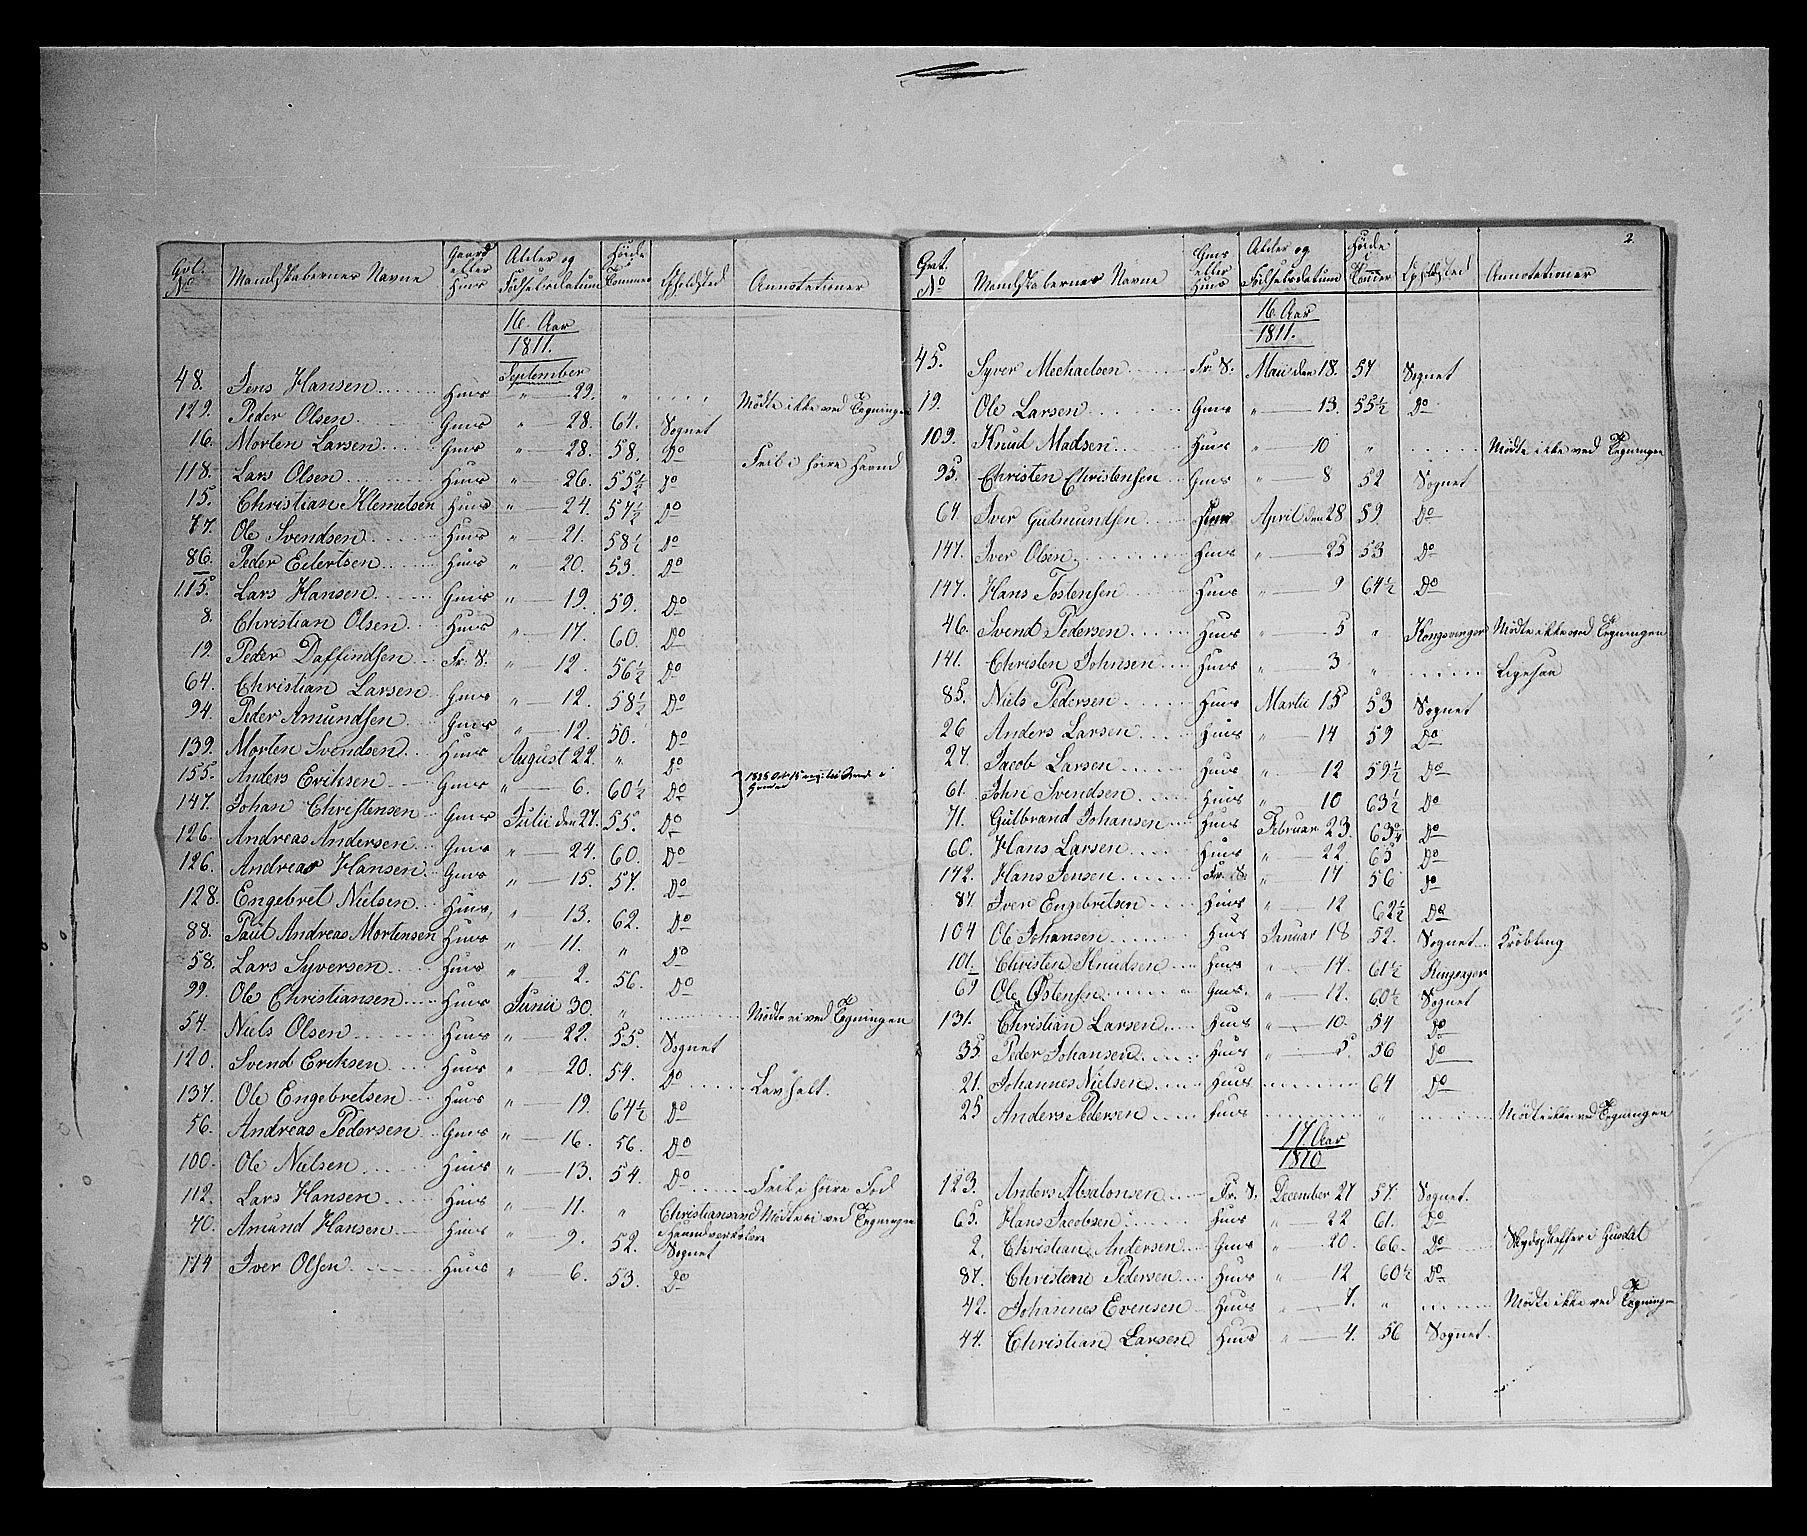 No Mandskabernes Navne Gaard eller Huus Alder og Fødselsdatum Høide Tommer Opholdsted Annotationer
16 Aar
1811.
September
48. Jens Hansen Huus " 29. " Mødte ikke ved Tegningen
129. Peder Olsen Huus " 28. 64. Sognet
16. Morten Larsen Huus " 28. 58. Do Feil i høire Haand
118. Lars Olsen Huus " 26. 55½ Do
15. Christian Klemetsen Huus " 24. 57½ Do
77. Ole Svendsen Huus " 21. 58½ Do
86. Peder Eilertsen Huus " 20. 53. Do
115. Lars Hansen Huus " 19. 59. Do
8. Christian Olsen Huus " 17. 60. Do
19. Peder Daffindsen Fr. S. " 12. 56½ Do
64. Christian Larsen Huus " 12. 58½ Do
94. Peder Amundsen Huus " 12. 50. Do
139. Morten Svendsen Huus August 22. " Do
155. Anders Eriksen Huus " 6. 60½ Do
147. Johan Christensen Huus Julii den 27. 55. Do
126. Andreas Andersen Huus " 24. 60. Do
126. Andreas Hansen Huus " 15. 57. Do
128. Engebret Nielsen Huus " 13. 62. Do
88. Paul Andreas Mortensen Huus " 11. " Do
58. Lars Syversen Huus " 2. 56. Do
99. Ole Christiansen Huus Junii 30. " Mødte ei ved Tegningen
54. Niels Olsen Huus " 22. 55. Sognet
120. Svend Eriksen Huus " 20. 54. Do Lavhalt.
137. Ole Engebretsen Huus " 19. 64½ Do
56. Andreas Pedersen Huus " 16. 56. Do
100. Ole Nielsen Huus " 13. 54. Do Feil i høire Fod
112. Lars Hansen Huus " 11. " Christiansand Mødte ei ved Tegningen
70. Amund Hansen Huus " 9. 52. Sognet
114 Iver Olsen Huus " 6. 53. Do
2.
No Mandskabernes Navne Huus Alder og Fødselsdatum Høide Tommer Opholdsted Annotationer
16. Aar
1811.
45. Syver Mechaelsen Fr. S. Maii den 18. 57 Sognet
19. Ole Larsen Huus " 13. 55½ Do
109. Knud Madsen Huus " 10 " Mødte ikke ved Tegningen
95. Christen Christensen Huus " 8 52 Sognet
64. Iver Gudmundsen Huus April den 28 59. Do
147. Iver Olsen Huus " 25 53 Do
147. Hans Tostensen Huus " 9 64½ Do
46. Svend Pedersen Huus " 5 " Kongsvinger Mødte ikke ved Tegningen
141. Christen Johnsen Huus " 3 " Ligesaa
85. Niels Pedersen Huus Martii 15 53 Sognet
26 Anders Larsen Huus " 14 59 Do
27. Jacob Larsen Huus " 12 59½ Do
61. John Svendsen Huus " 10 63½ Do
71. Gulbrand Johansen Huus Februar 23. 63¾ Do
60. Hans Larsen Huus " 22. 65 Do
172. Hans Jensen Fr. S. " 17 56 Do
87 Iver Engebretsen Huus " 12 62½ Do
104 Ole Johansen Huus Januar 18 52. Sognet Krøbling
101. Christen Knudsen Huus " 14. 61½ Ringerger
69 Ole Østensen Huus " 12. 60½ Sognet
131. Christian Larsen Huus " 10. 54 Do
35. Peder Johansen Huus " 5. 56 Do
21. Johannes Nielsen Huus 64 Do
25 Anders Pedersen Huus " Mødte ikke ved Tegningen
17. Aar
1810
123. Anders Absalonsen Fr. S. December 27 57. Sognet.
65. Hans Jacobsen Huus " 22 61. Do
2. Christian Andersen Huus " 20. 66. Do Skydsskaffer i Huusdal
87. Christian Pedersen Huus " 12 60½ Do
42. Johannes Evensen Huus " 7. " Mødte ikke ved Tegningen
44. Christian Larsen Huus " 4. 56 Sognet.